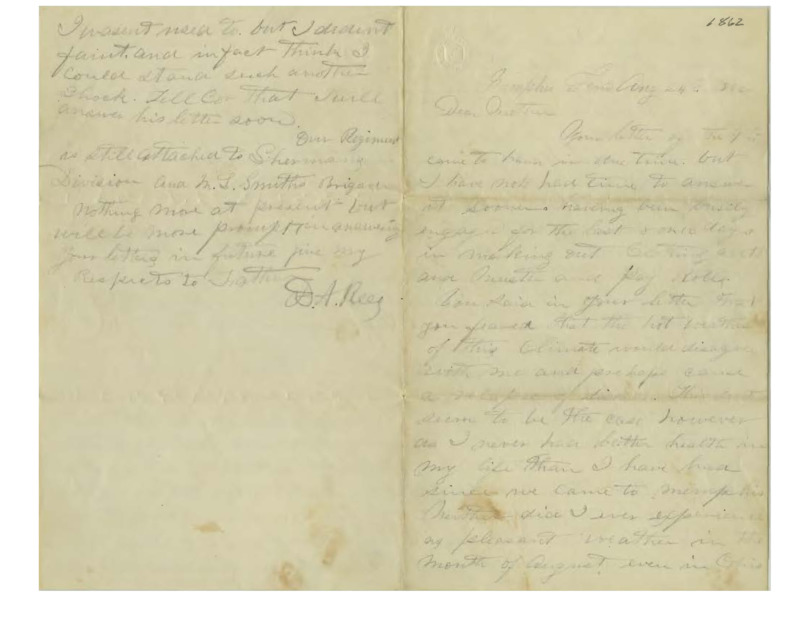 I wasent used to. but I didint
faint. and in fact think I
could stand such another
Shock. Tell Cor that I will
answer his letter soon.
Our Regiment
as still attached to Shermans
Division and M. L. Smiths Brigade
nothing more at present but
will be more prompt in answering
your letters in future give my
Respects to Father
D. A. Rees
1862
Memphis Tenn Aug
Dear
Your letter of the
came to hand in due time. but
I have not had time to answer
it sooner having been busily
engaged for the last days
in making out
and Muster and Pay Rolls
You said in your letter that
you feared that the hot weather
of this Climate would disagree
with me and perhaps cause
a relapse of disease. This dont
seem to be the case however
as I never had better health in
my life than I have had
since we came to Memphis
Neither did I ever experience
as pleasant weather in the
month of August even in Ohio